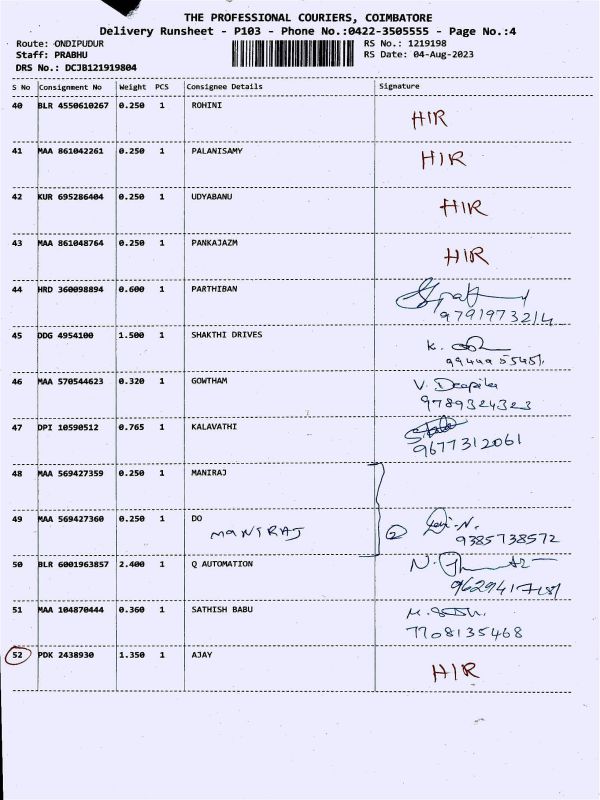 THE PROFESSIONAL COURIERS, COIMBATORE
Delivery Runsheet - P103 - Phone No.:0422-3505555 - Page No.:4
Route: ONDIPUDUR RS No.: 1219198
Staff: PRABHU RS Date: 04-Aug-2023
DRS No.: DCJB121919804
S No Consignment No Weight PCS Consignee Details Signature
40 BLR 4550610267 0.250 1 ROHINI
HIR
41 MAA 861042261 0.250 1 PALANISAMY
HIR
42 KUR 695286404 0.250 1 UDYABANU
HIR
43 MAA 861048764 0.250 1 PANKAJAZM
HIR
44 HRD 360098894 0.600 1 PARTHIBAN
9791973214
45 DDG 4954100 1.500 1 SHAKTHI DRIVES
K.
46 MAA 570544623 0.320 1 GOWTHAM V. Deepika
9789324323
47 DPI 10590512 0.765 1 KALAVATHI
9677312061
48 MAA 569427359 0.250 1 MANIRAJ
49 MAA 569427360 0.250 1 DO
MANIRAJ 2 9385738572
50 BLR 6001963857 2.400 1 Q AUTOMATION
51 MAA 104870444 0.360 1 SATHISH BABU
7708135468
52 PDK 2438930 1.350 1 AJAY
HIR